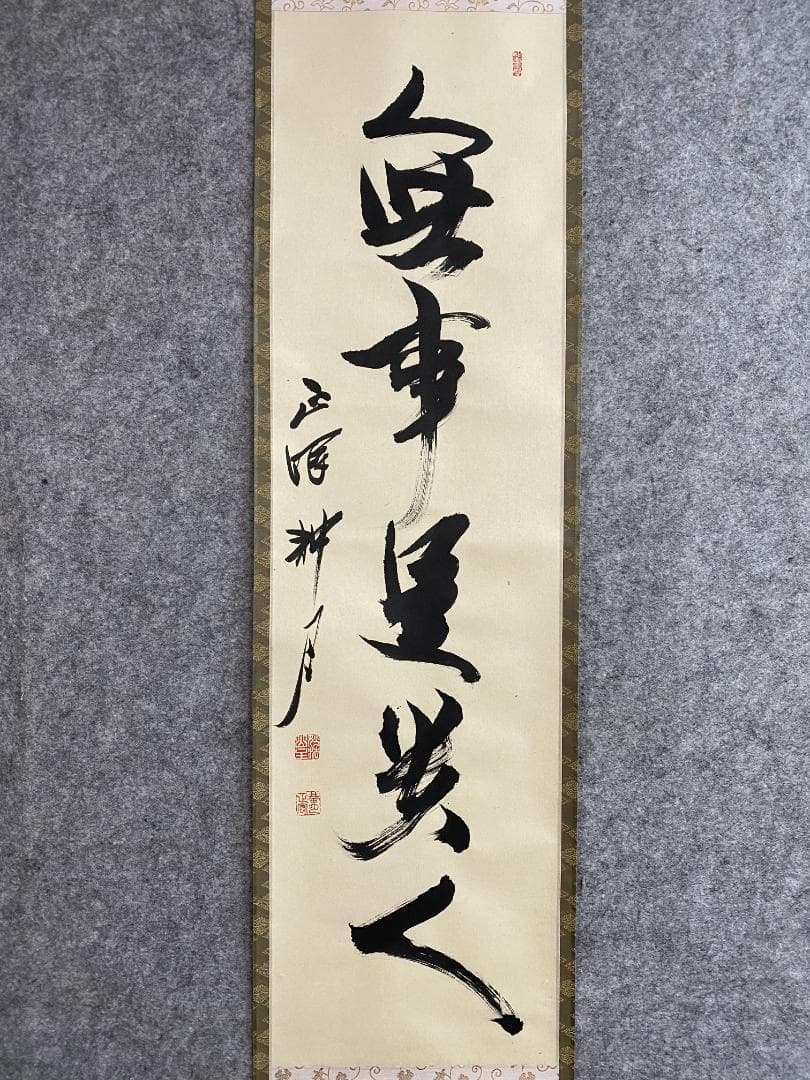 無事是貴人
正深耕月